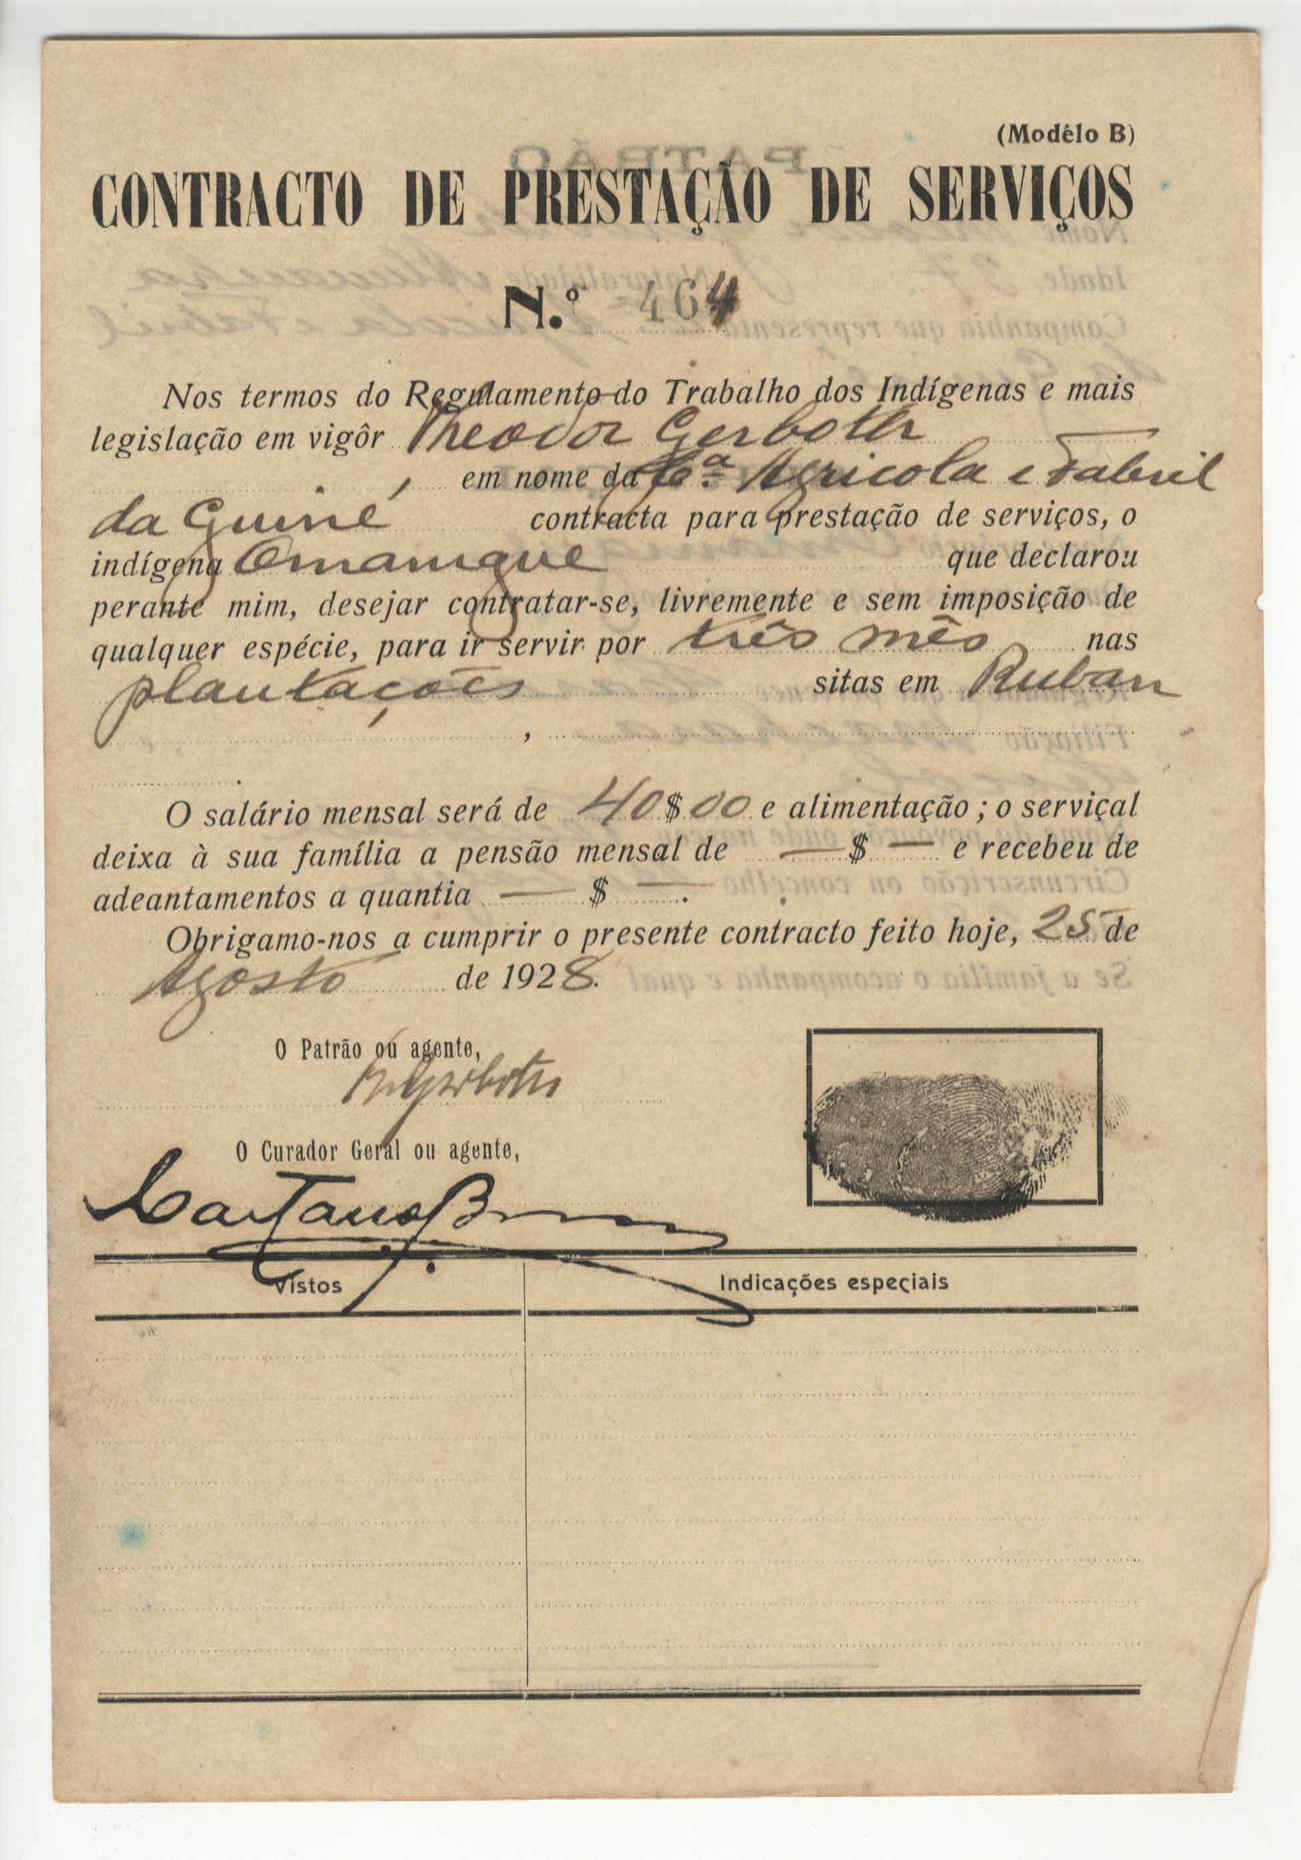 (Modêlo B)
CONTRACTO DE PRESTAÇÃO DE SERVIÇOS
N.º 464
Nos termos do Regulamento do Trabalho dos Indígenas e mais
legislação em vigôr Theodor Gerboth
, em nome da Cª Agricola e Fabril
da Guiné contracta para prestação de serviços, o
indígena que declarou
perante mim, desejar contratar-se, livremente e sem imposição de
qualquer espécie, para ir servir por três mês nas
plantações sitas em Ruban
,
.
O salário mensal será de 40$00 e alimentação; o serviçal
deixa à sua família a pensão mensal de —$— e recebeu de
adeantamentos a quantia —$—.
Obrigamo-nos a cumprir o presente contracto feito hoje, 25 de
Agosto de 1928.
O Patrão ou agente,
Gerboth
O Curador Geral ou agente,
Caetano
Vistos Indicações especiais